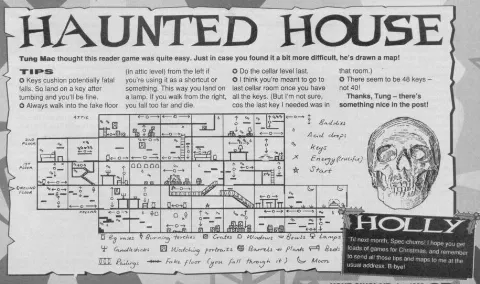 HAUNTED HOUSE
Tung Mac thought this reader game was quite easy. Just in case you found it a bit more difficult, he's drawn a map!
TIPS
✪ Keys cushion potentially fatal
falls. So land on a key after
tumbing and you'll be fine.
✪ Always walk into the fake floor
(in attic level) from the left if
you're using it as a shortcut or
something. This way you land on
a lamp. If you walk from the right,
you fall too far and die.
✪ Do the cellar level last.
✪ I think you're meant to go to
last cellar room once you have
all the keys. (But I'm not sure,
cos the last key I needed was in
that room.)
✪ There seem to be 48 keys –
not 40!
Thanks, Tung – there's
something nice in the post!
ATTIC
2ND FLOOR
1ST FLOOR
GROUND FLOOR
CELLAR
Baddies
Acid drops
Keys
Energy (crucifix)
Start
Egg vases
Burning torches
Crates
Windows
Bowls
Lamps
Candlesticks
Watching portraits
Barrels
Plants
Beds
Railings
Fake floor (you fall through it)
Moon
HOLLY
Til next month, Spec-chums! I hope you get
loads of games for Christmas, and remember
to send all those tips and maps to me at the
usual address. B-bye!